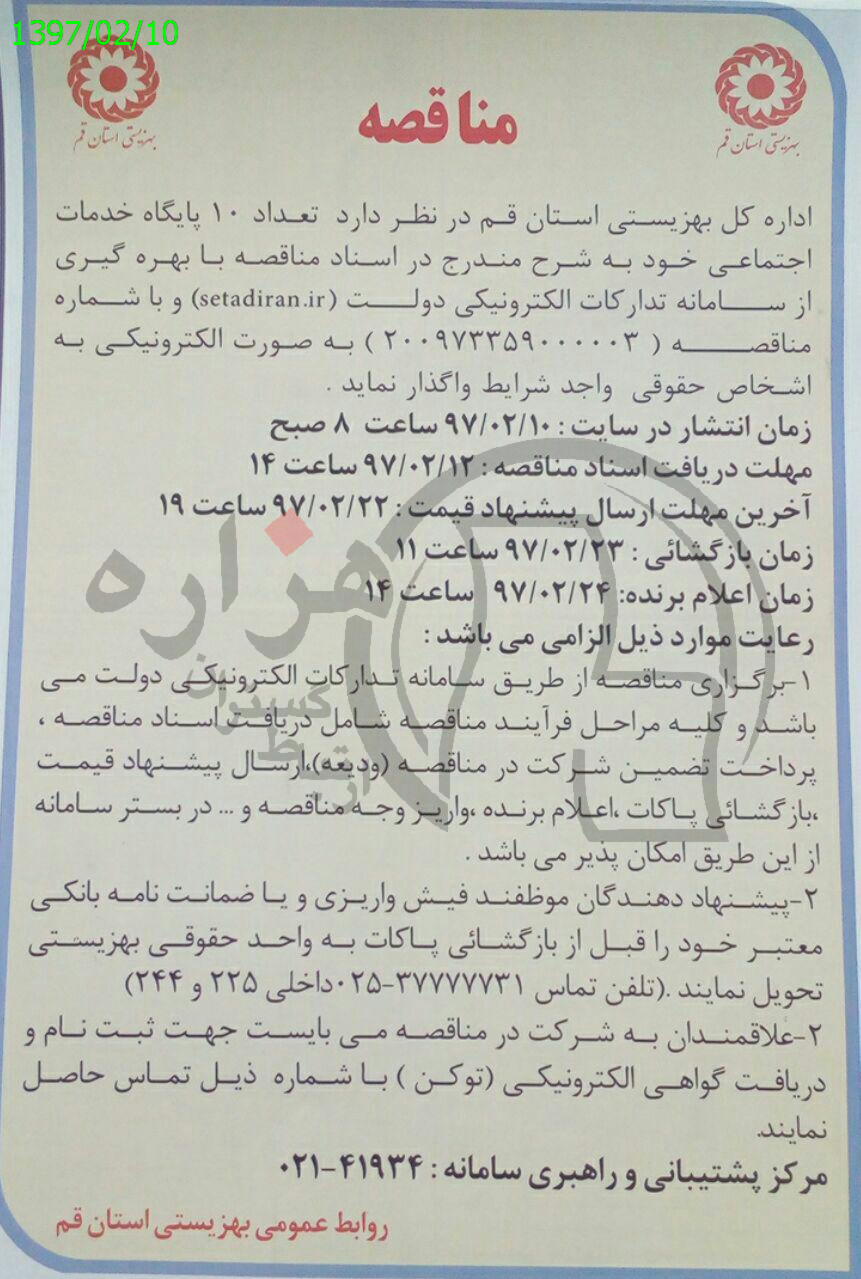 1397/02/10
بهزیستی استان قم
بهزیستی استان قم
مناقصه
اداره کل بهزیستی استان قم در نظر دارد تعداد ۱۰ پایگاه خدمات
اجتماعی خود به شرح مندرج در اسناد مناقصه با بهره گیری
از سامانه تدارکات الکترونیکی دولت (setadiran.ir) و با شماره
مناقصه ( ۲۰۰۹۷۳۳۵۹۰۰۰۰۰۳ ) به صورت الکترونیکی به
اشخاص حقوقی واجد شرایط واگذار نماید .
زمان انتشار در سایت : ۹۷/۰۲/۱۰ ساعت ۸ صبح
مهلت دریافت اسناد مناقصه : ۹۷/۰۲/۱۲ ساعت ۱۴
آخرین مهلت ارسال پیشنهاد قیمت : ۹۷/۰۲/۲۲ ساعت ۱۹
زمان بازگشائی : ۹۷/۰۲/۲۳ ساعت ۱۱
زمان اعلام برنده: ۹۷/۰۲/۲۴ ساعت ۱۴
رعایت موارد ذیل الزامی می باشد :
۱-برگزاری مناقصه از طریق سامانه تدارکات الکترونیکی دولت می
باشد و کلیه مراحل فرآیند مناقصه شامل دریافت اسناد مناقصه ،
پرداخت تضمین شرکت در مناقصه (ودیعه)،ارسال پیشنهاد قیمت
،بازگشائی پاکات ،اعلام برنده ،واریز وجه مناقصه و ... در بستر سامانه
از این طریق امکان پذیر می باشد .
۲-پیشنهاد دهندگان موظفند فیش واریزی و یا ضمانت نامه بانکی
معتبر خود را قبل از بازگشائی پاکات به واحد حقوقی بهزیستی
تحویل نمایند .(تلفن تماس ۳۷۷۷۷۷۳۱-۰۲۵داخلی ۲۲۵ و ۲۴۴)
۲-علاقمندان به شرکت در مناقصه می بایست جهت ثبت نام و
دریافت گواهی الکترونیکی (توکن ) با شماره ذیل تماس حاصل
نمایند.
مرکز پشتیبانی و راهبری سامانه : ۴۱۹۳۴-۰۲۱
روابط عمومی بهزیستی استان قم
هزاره